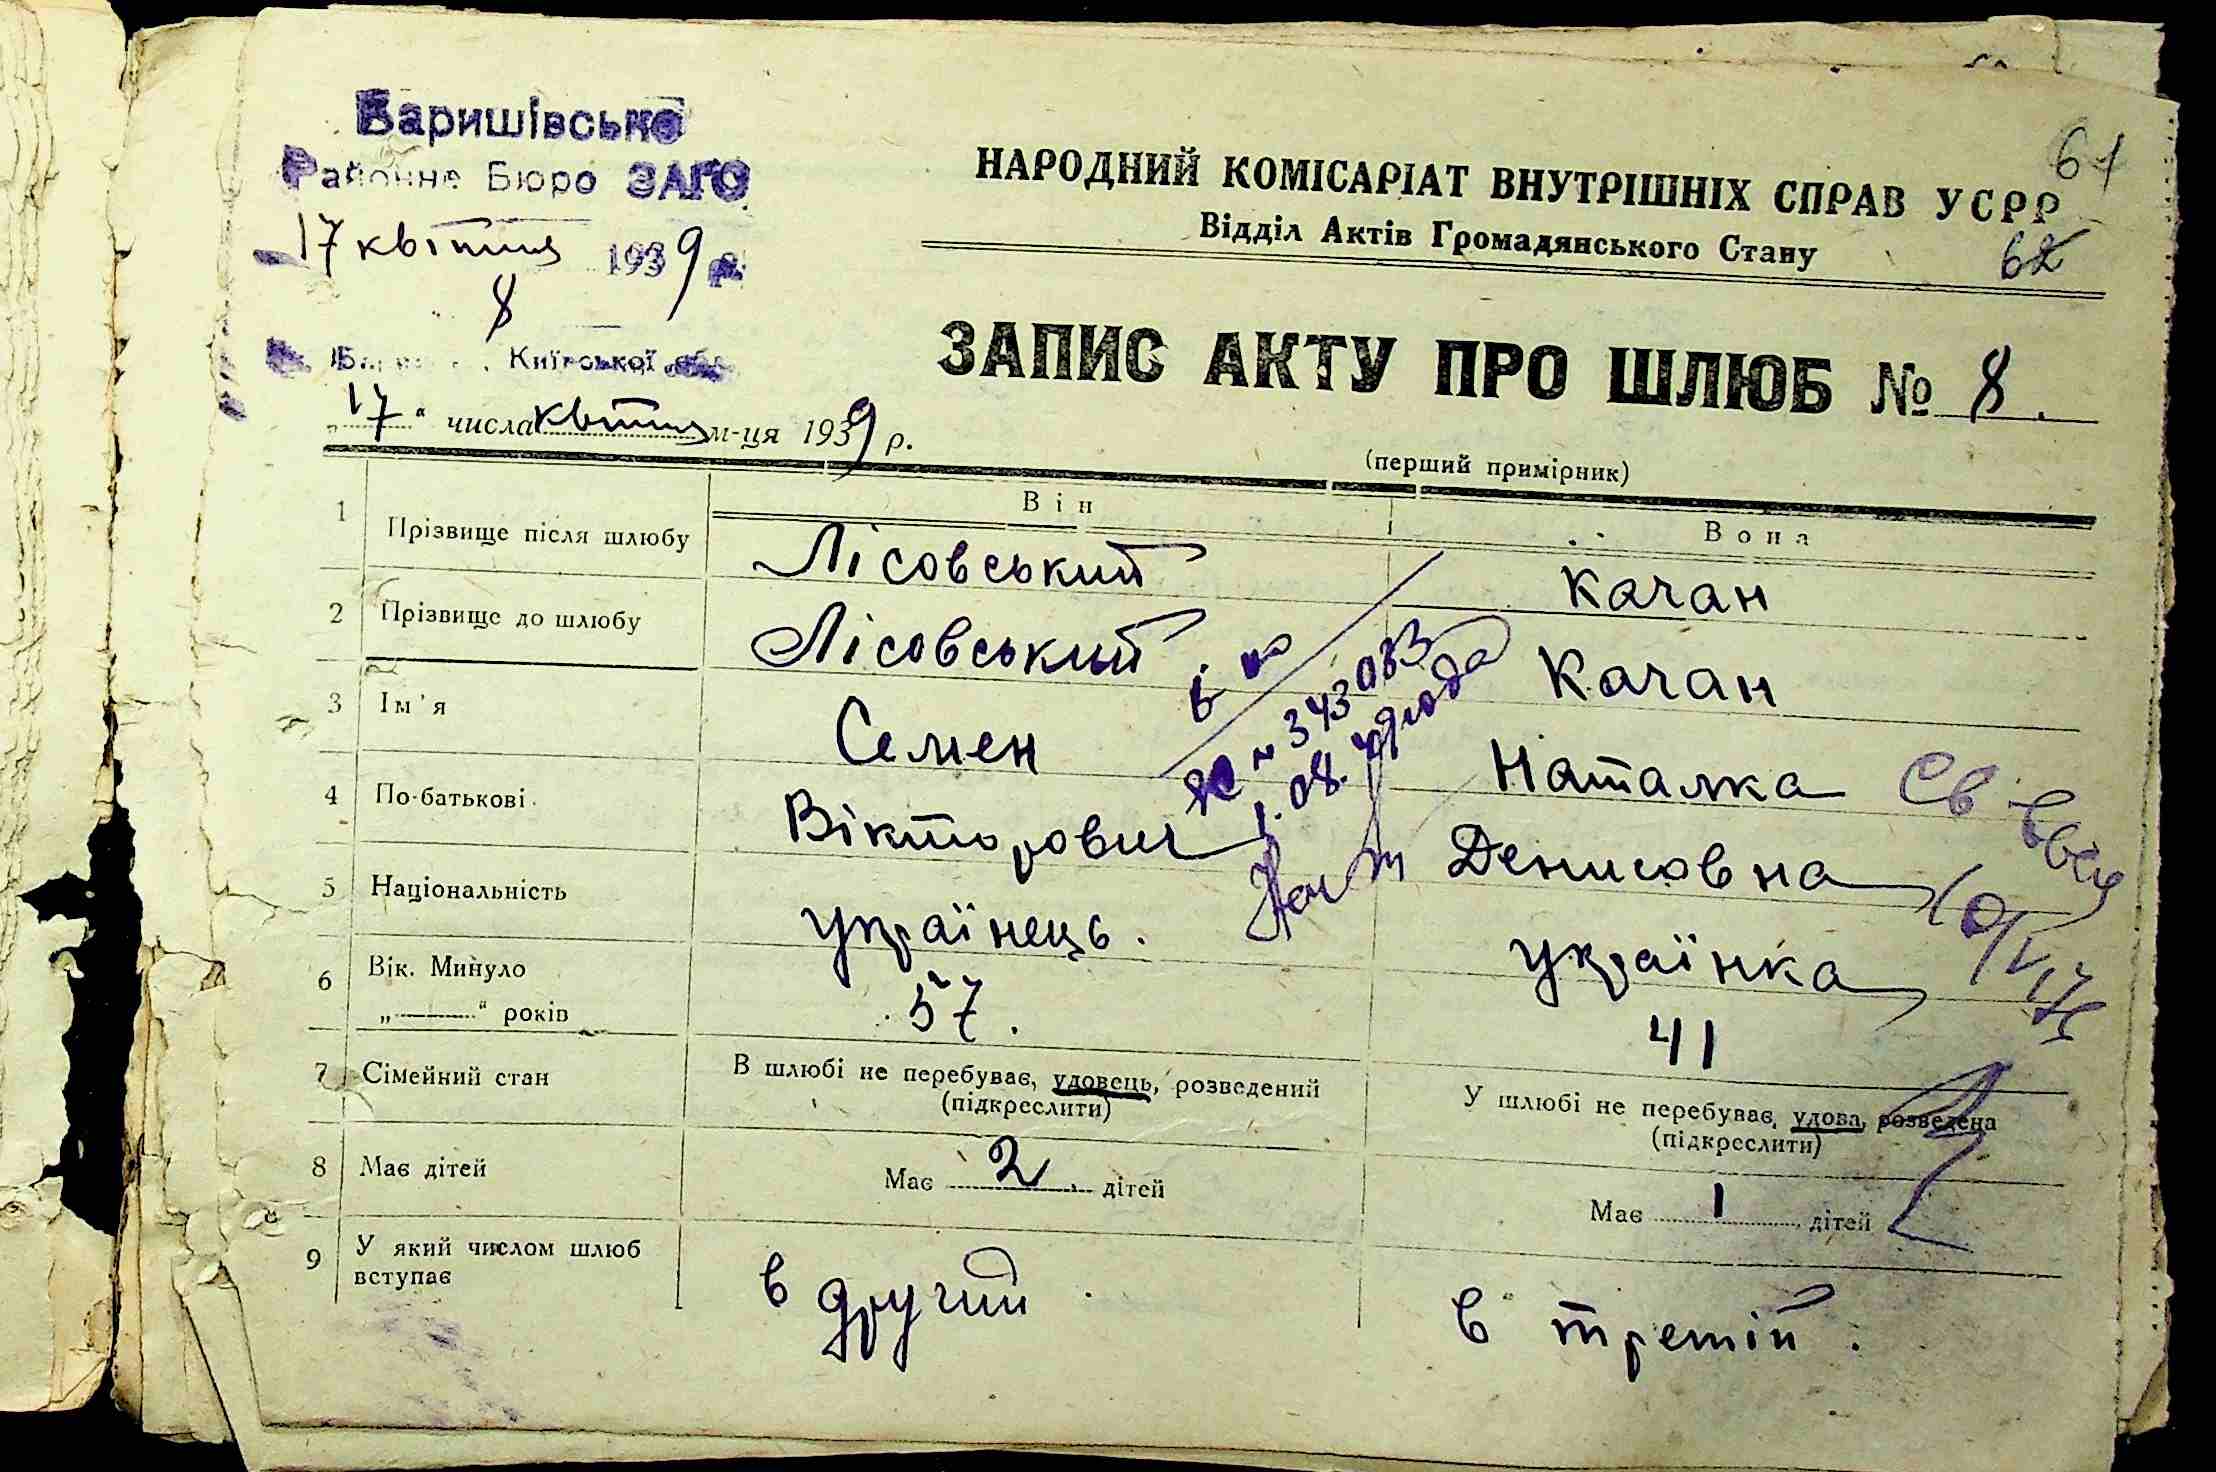 Баришівське
Районне Бюро ЗАГС
17 квітня 1939 р.
8
Київської обл.
"17" числа квітня м-ця 1939 р.
61
НАРОДНИЙ КОМІСАРІАТ ВНУТРІШНІХ СПРАВ УСРР
Відділ Актів Громадянського Стану
62
ЗАПИС АКТУ ПРО ШЛЮБ № 8.
(перший примірник)
Він Вона
1 Прізвище після шлюбу Лісовський Качан
2 Прізвище до шлюбу Лісовський Качан
3 Ім'я Семен Наталка
4 По-батькові Вікторович Денисовна
5 Національність українець. українка
6 Вік. Минуло 57. 41
„ “ років
7 Сімейний стан В шлюбі не перебуває, удовець, розведений У шлюбі не перебуває, удова, розведена
(підкреслити) (підкреслити)
8 Має дітей Має 2 дітей Має 1 дітей
9 У який числом шлюб в другий в третій.
вступає
№ 343083
1.08.
Св